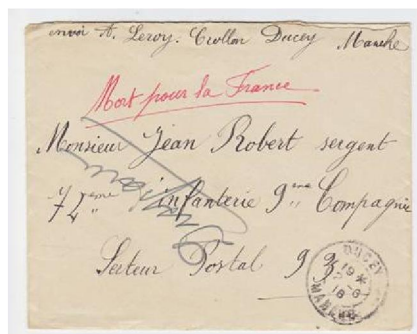 envoi A. Leroy. Crollon Ducey Manche
Mort pour la France
Monsieur Jean Robert sergent
74ème infanterie 9me Compagnie
Secteur Postal 93
DUCEY
19 *
18
MANCHE